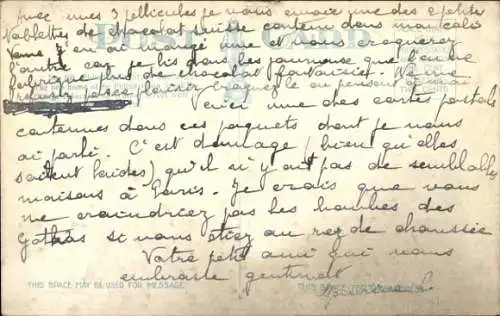 Avec mes 3 pellicules je vous envoie une des 2 petites
tablettes de chocolat suisse contenu dans mon colis
Vamé j'en ai mangé une et vous croquerez
l'autre car je lis dans les journaux que l'on ne
fabrique plus de chocolat fantaisie.
plaisir croquez le en pensant à moi
POST CARD
une des cartes postales
contenues dans ces paquets dont je vous
ai parlé. C'est dommage (bien qu'elles
soient laides) qu'il n'y ait pas de semblables
maisons à Paris. Je crois que vous
ne craindriez pas les bombes des
Gothas si vous étiez au rez de chaussée
Votre petit ami qui vous
embrasse gentiment
THIS SPACE MAY BE USED FOR MESSAGE